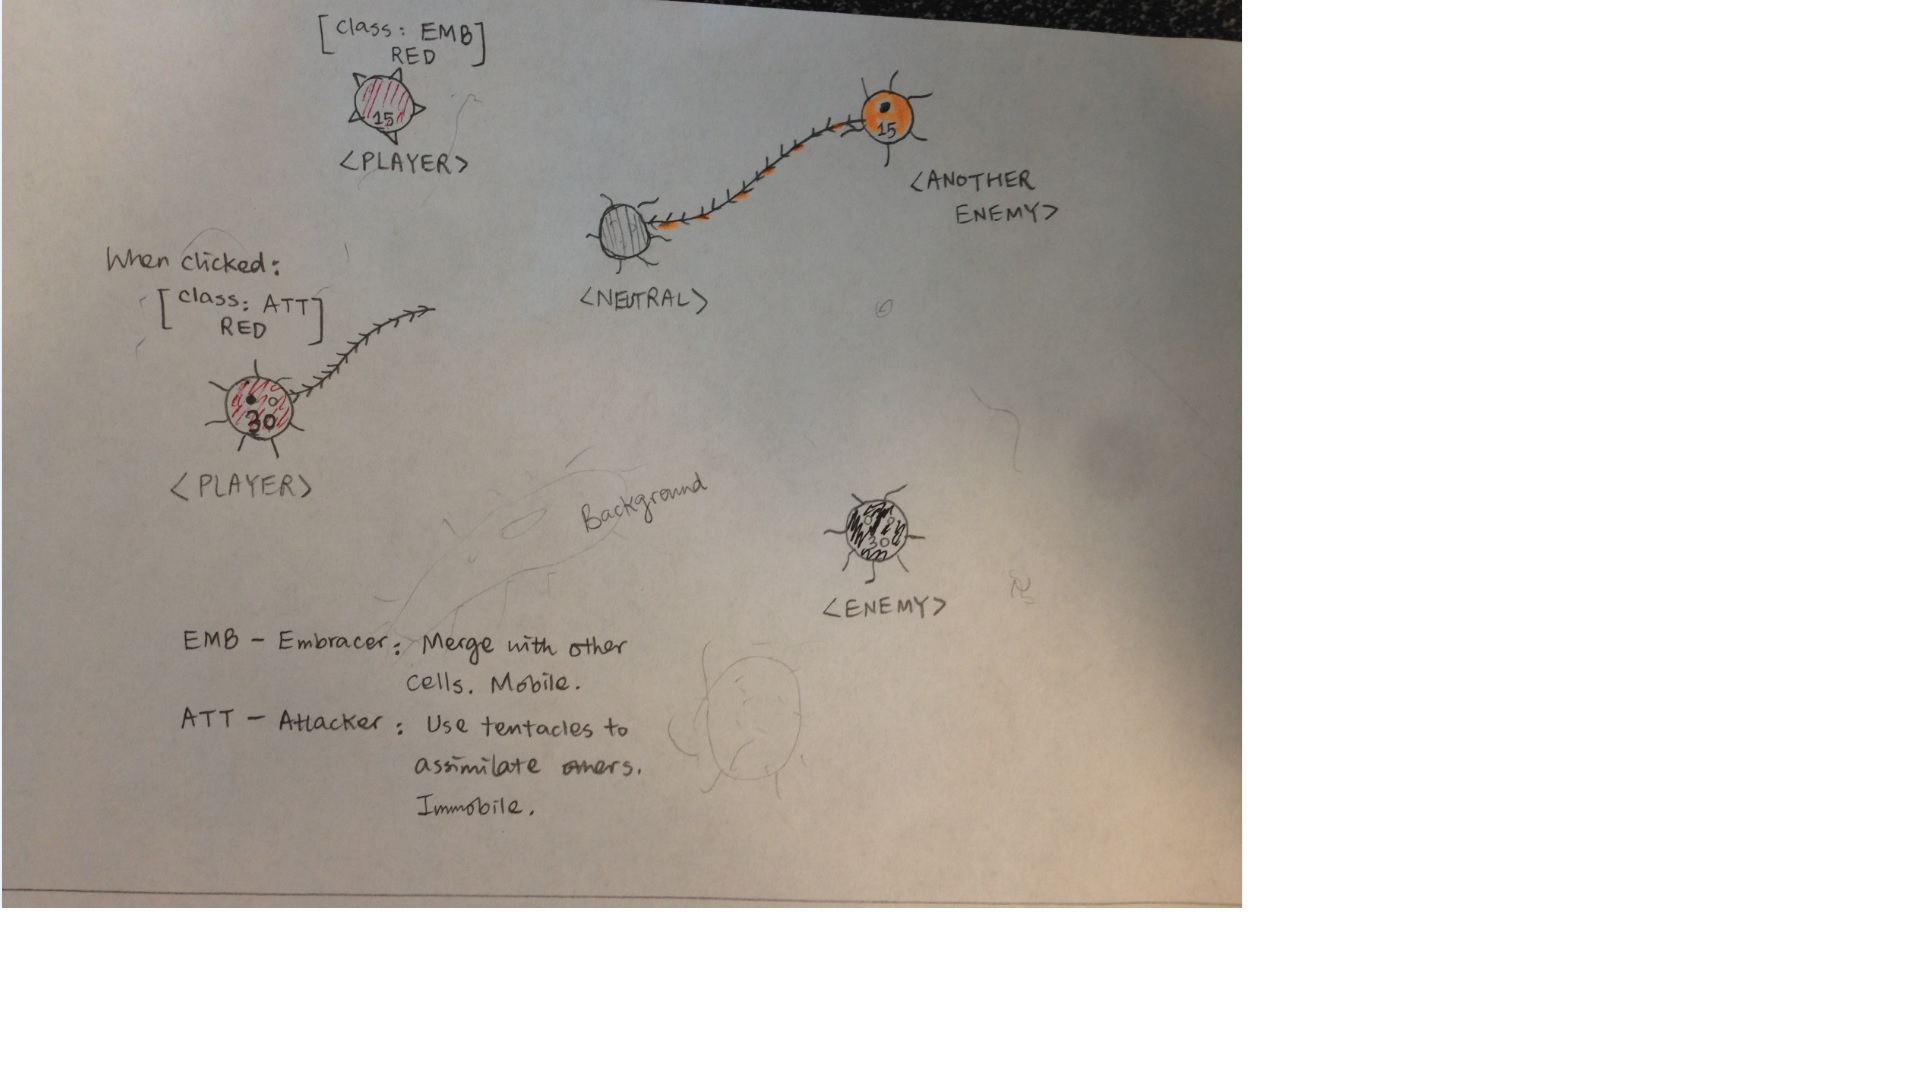 [class: EMB
RED]
15
<PLAYER>
15
<ANOTHER
ENEMY>
<NEUTRAL>
When clicked:
[class: ATT
RED]
30
<PLAYER>
Background
30
<ENEMY>
EMB - Embracer: Merge with other
cells. Mobile.
ATT - Attacker: Use tentacles to
assimilate others.
Immobile.